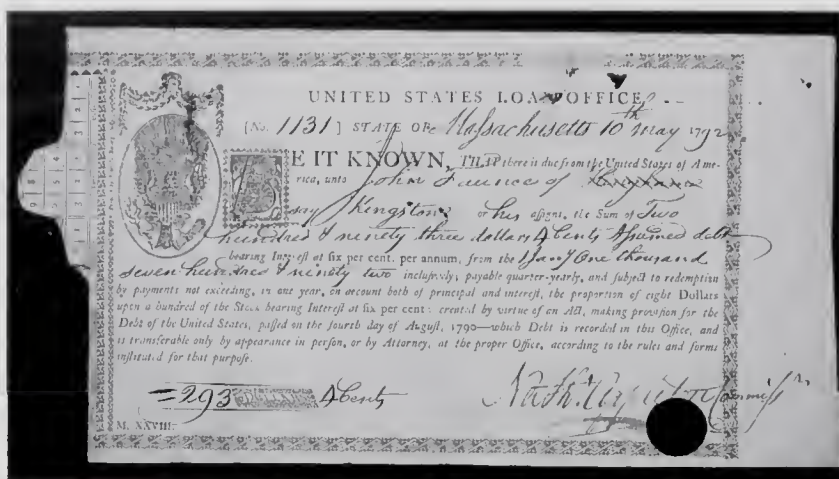 UNITED STATES LOAN OFFICE
[No. 1131] STATE OF Massachusetts 10th May 1792
BE IT KNOWN, THAT there is due from the United States of Ame-
rica, unto John Faunce of
say Kingston or his assigns, the Sum of Two
hundred & ninety three dollars 4 Cents Assumed debt
bearing Interest at six per cent. per annum, from the 1 Jany One thousand
seven hundred & ninety two inclusively, payable quarter-yearly, and subject to redemption
by payments not exceeding, in one year, on account both of principal and interest, the proportion of eight Dollars
upon a hundred of the Stock bearing Interest at six per cent: created by virtue of an Act, making provision for the
Debt of the United States, passed on the fourth day of August, 1790—which Debt is recorded in this Office, and
is transferable only by appearance in person, or by Attorney, at the proper Office, according to the rules and forms
instituted for that purpose.
=293 DOLLARS 4 Cents
Nath: Appleton Commissr
M. XXVIII.